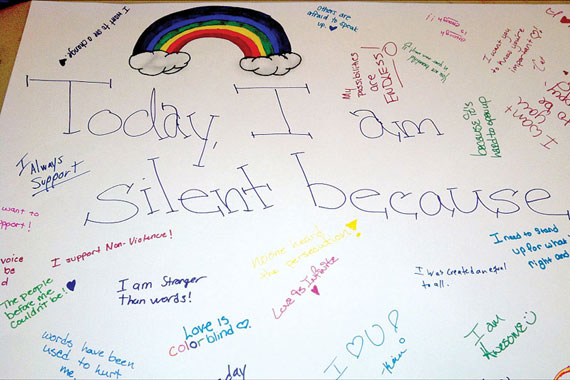 I want to be a change
Others are
afraid to speak
up.
My
possibilities
are
ENDLESS!
I want you
to know you're
important!
because it's
hard to open up
I want
to be
you
Today, I am
silent because
I Always
Support
want to
support!
voice
be
d
I support Non-Violence!
The people
before me
couldn't be!
I am Stronger
than words!
no one needs
the persecution!
Love is Infinite
Love is
colorblind
I need to stand
up for what
right and
I was created an equal
to all.
I am
Awesome
words have been
used to hurt
me.
I ♡ U